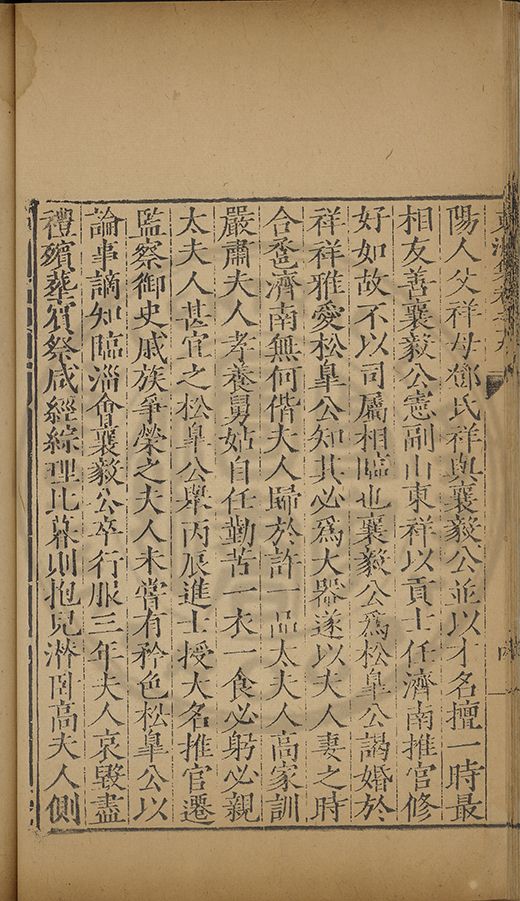 陽人父祥母鄧氏祥與襄毅公並以才名擅一時最
相友善襄毅公憲副山東祥以貢士任濟南推官修
好如故不以司屬相臨也襄毅公爲松皐公謁婚於
祥祥雅愛松皐公知其必爲大器遂以夫人妻之時
合巹濟南無何偕夫人歸於許一品太夫人高家訓
嚴肅夫人孝養舅姑自任勤苦一衣一食必躬必親
太夫人甚宜之松皐公舉丙辰進士授大名推官遷
監察御史戚族爭榮之夫人未嘗有矜色松皐公以
論事謫知臨淄會襄毅公卒行服三年夫人哀毀盡
禮殯葬賓祭咸經綜理比暮則抱兒淋高夫人側